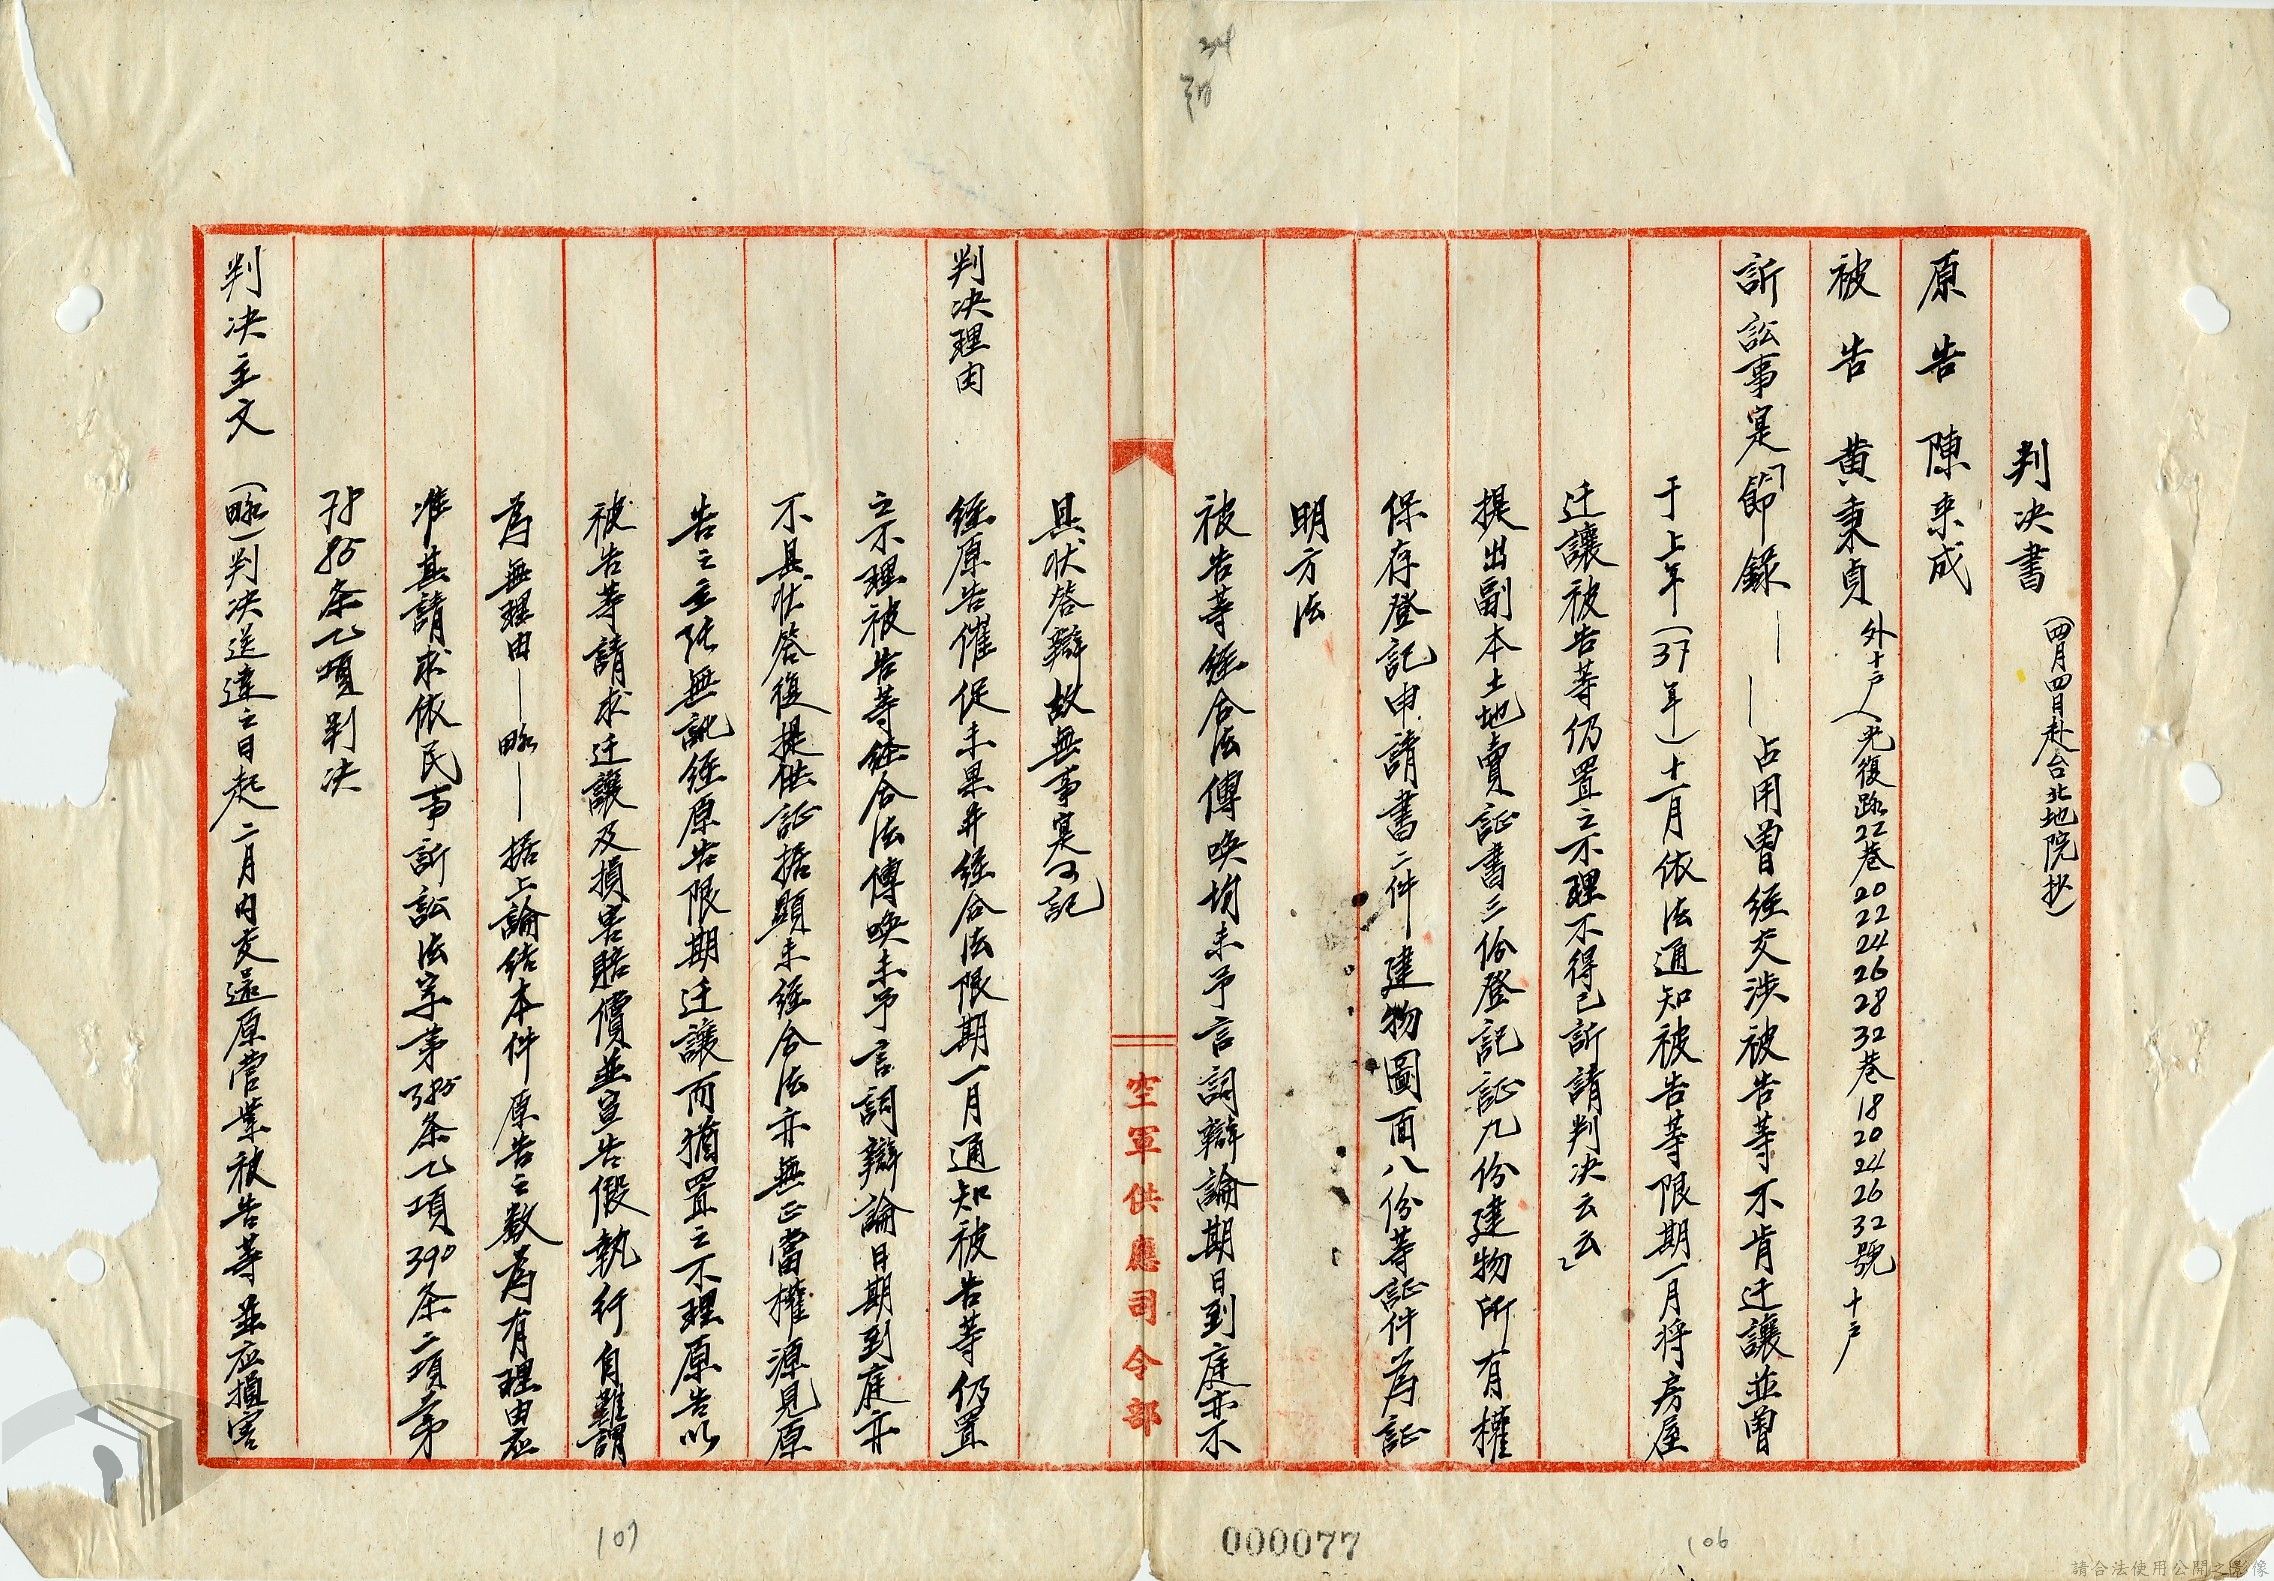 判决書(四月四日赴台北地院抄)
原告 陳来成
被告 黄秉貞外十戶人光復路22巷20 22 24 26 28 32巷18 20 24 26 32號十戶
訴訟事実節錄——占用曾經交涉被告等不肯迁讓並曾
于上年(37年)十一月依法通知被告等限期一月將房屋
迁讓被告等仍置之不理不得已訴請判决云云」
提出副本土地賣証書三份登記証九份建物所有權
保存登記申請書二件建物圖面八份等証件為証
明方法
被告等經合法傳唤均未予言詞辯論期日到庭亦不
空軍供應司令部
具狀答辯故無事実可記
判决理由 經原告催促未果并經合法限期一月通知被告等仍置
之不理被告等經合法傳唤未予言詞辯論日期到庭亦
不具狀答復提供証据顯未經合法亦無正當權源見原
告之主張無訛經原告限期迁讓而猶置之不理原告以
被告等請求迁讓及損害賠償並宣告假執行自難謂
為無理由——略——据上論结本件原告之數為有理由应
准其請求依民事訴訟法第385条乙項390条二項第
78 85条乙項判决
判决主文 (略)判决送達之日起二月内交還原营業被告等並应損害
000077
107
106
請合法使用公開之影像